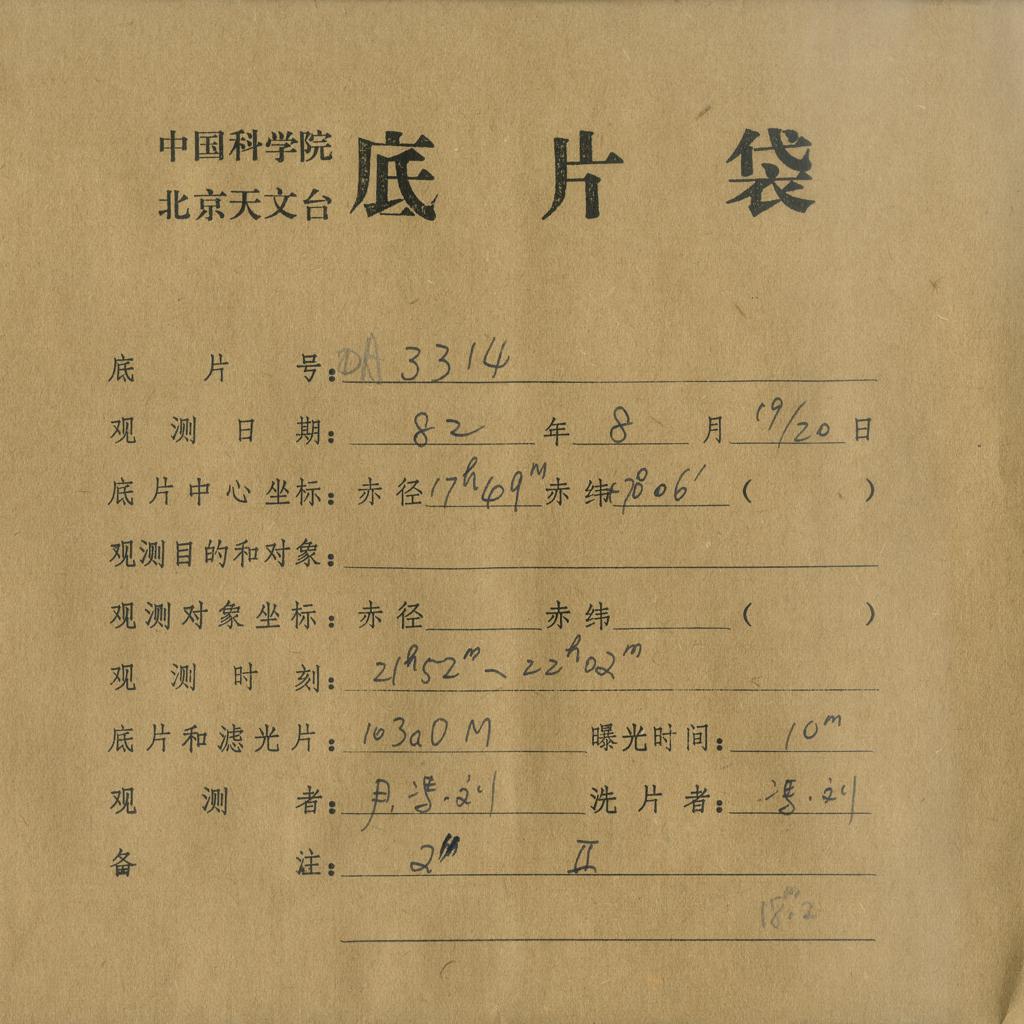 中国科学院
北京天文台
底片袋
底片号：DA 3314
观测日期：82年8月19/20日
底片中心坐标：赤径17h49m赤纬+78°06′（ ）
观测目的和对象：
观测对象坐标：赤径 赤纬 （ ）
观测时刻：21h52m~22h02m
底片和滤光片：103aO M 曝光时间：10m
观测者：冯.刘 洗片者：冯.刘
备注：2 II
18.2